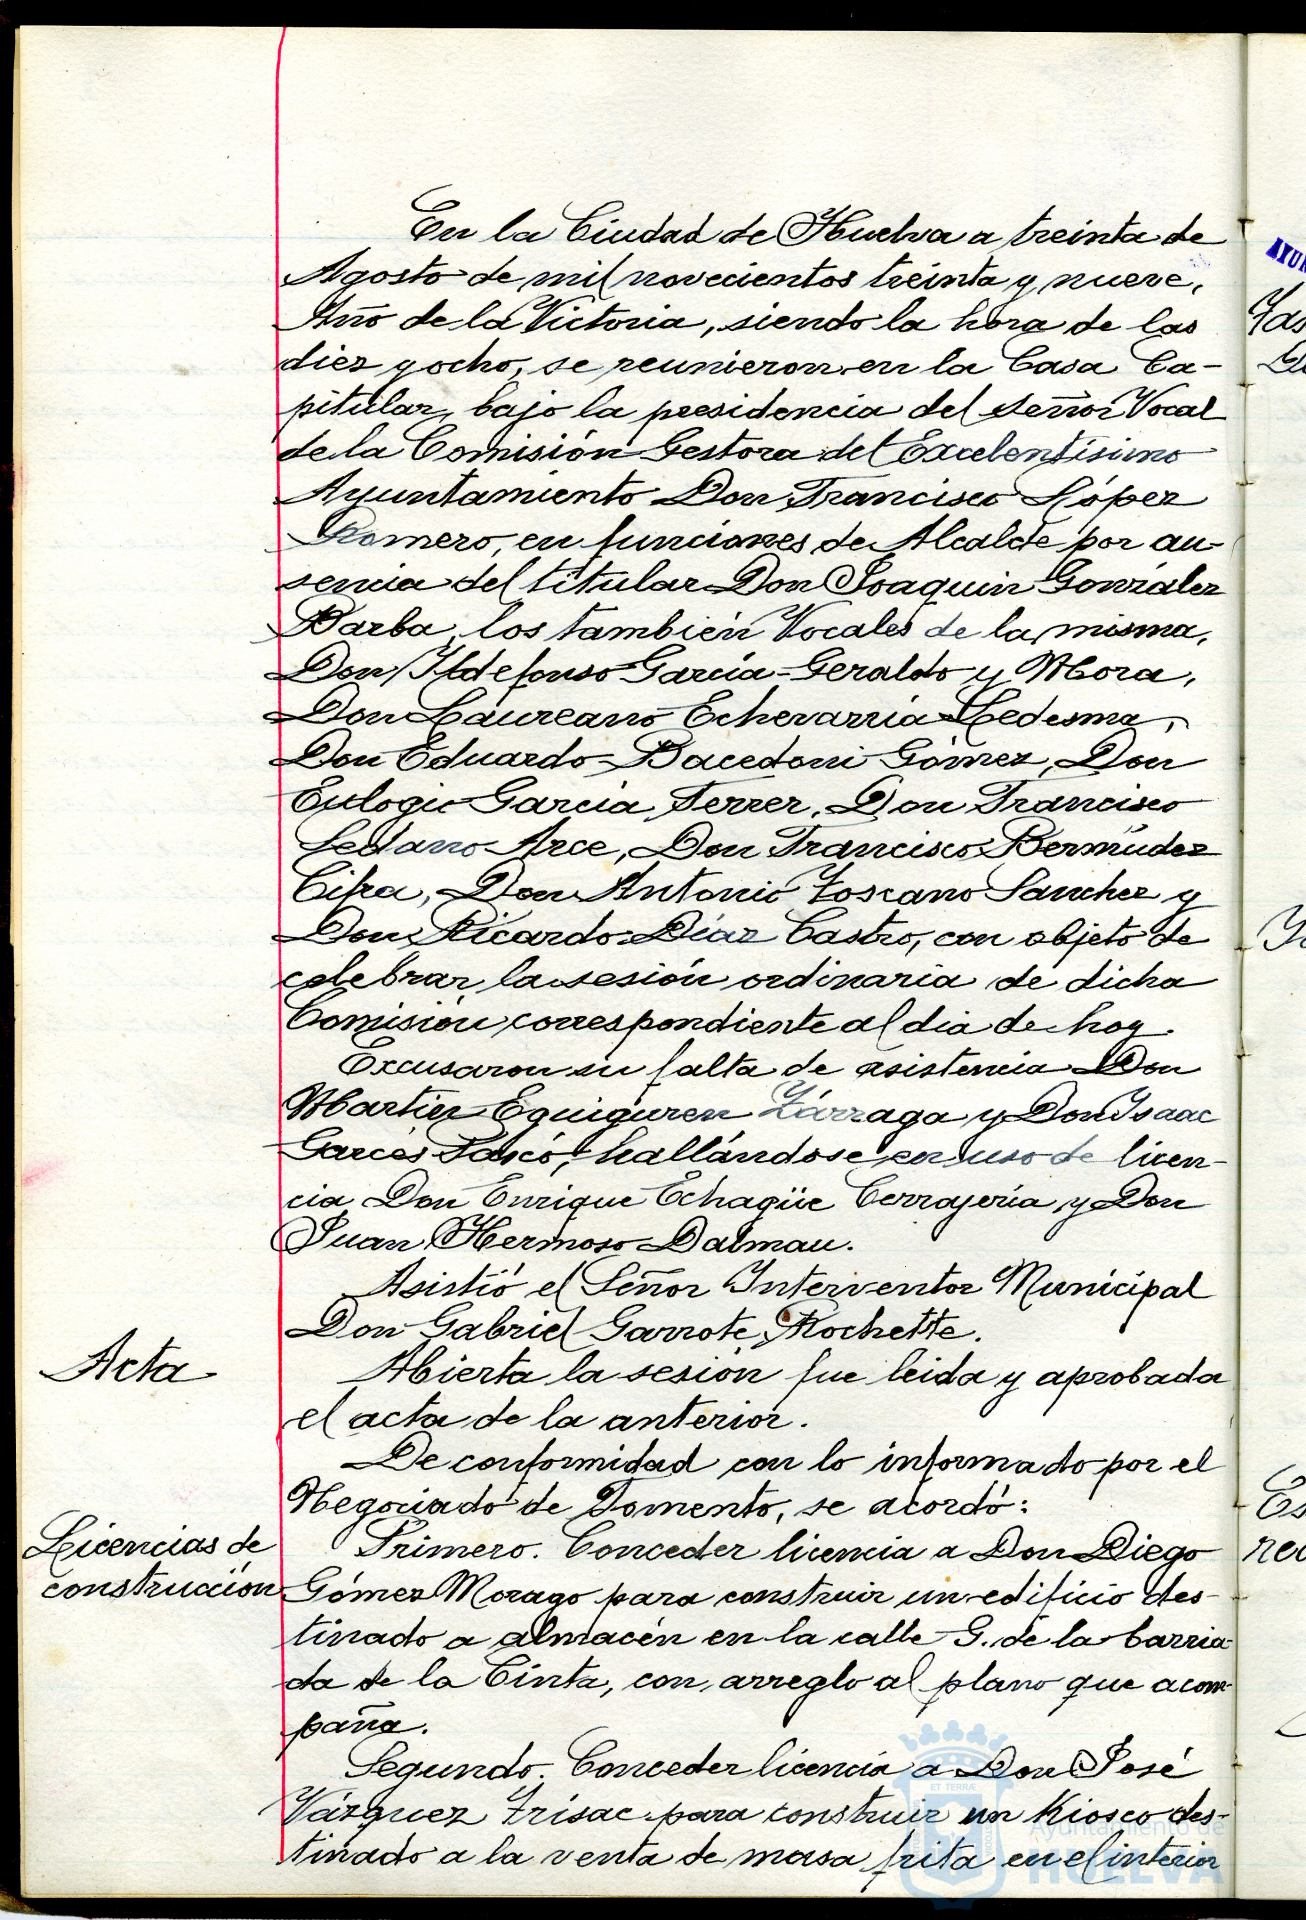 En la Ciudad de Huelva a treinta de
Agosto de mil novecientos treinta y nueve,
Año de la Victoria, siendo la hora de las
diez y ocho, se reunieron en la Casa Ca-
pitular, bajo la presidencia del señor Vocal
de la Comisión Gestora del Excelentísimo
Ayuntamiento Don Francisco López
Romero, en funciones de Alcalde por au-
sencia del titular Don Joaquin González
Barba, los también Vocales de la misma,
Don Ildefonso García-Geraldo y Mora,
Don Laureano Echevarría Ledesma,
Don Eduardo Bacedoni Gómez, Don
Eulogio García Ferrer, Don Francisco
Sedano Arce, Don Francisco Bermúdez
Don Antonio Toscano Sanchez y
Don Ricardo Diaz Castro, con objeto de
celebrar la sesión ordinaria de dicha
Comisión correspondiente al dia de hoy.
Excusaron su falta de asistencia Don
Eguiguren Zárraga y Don Isaac
Garcés hallándose en uso de licen-
cia Don Enrique Echagüe Cerrajería y Don
Juan Hermoso Dalmau.
Asistió el Señor Interventor Municipal
Don Gabriel Garrote Rochette.
Acta
Abierta la sesión fue leida y aprobada
el acta de la anterior.
De conformidad con lo informado por el
Negociado de Fomento, se acordó:
Licencias de
construcción
Primero. Conceder licencia a Don Diego
Gómez Morago para construir un edificio des-
tinado a almacén en la calle G. de la barria-
da de la Cinta, con arreglo al plano que acom-
paña.
Segundo. Conceder licencia a Don José
Vázquez para construir un Kiosco des-
tinado a la venta de masa frita en el interior
Ayuntamiento de
HUELVA